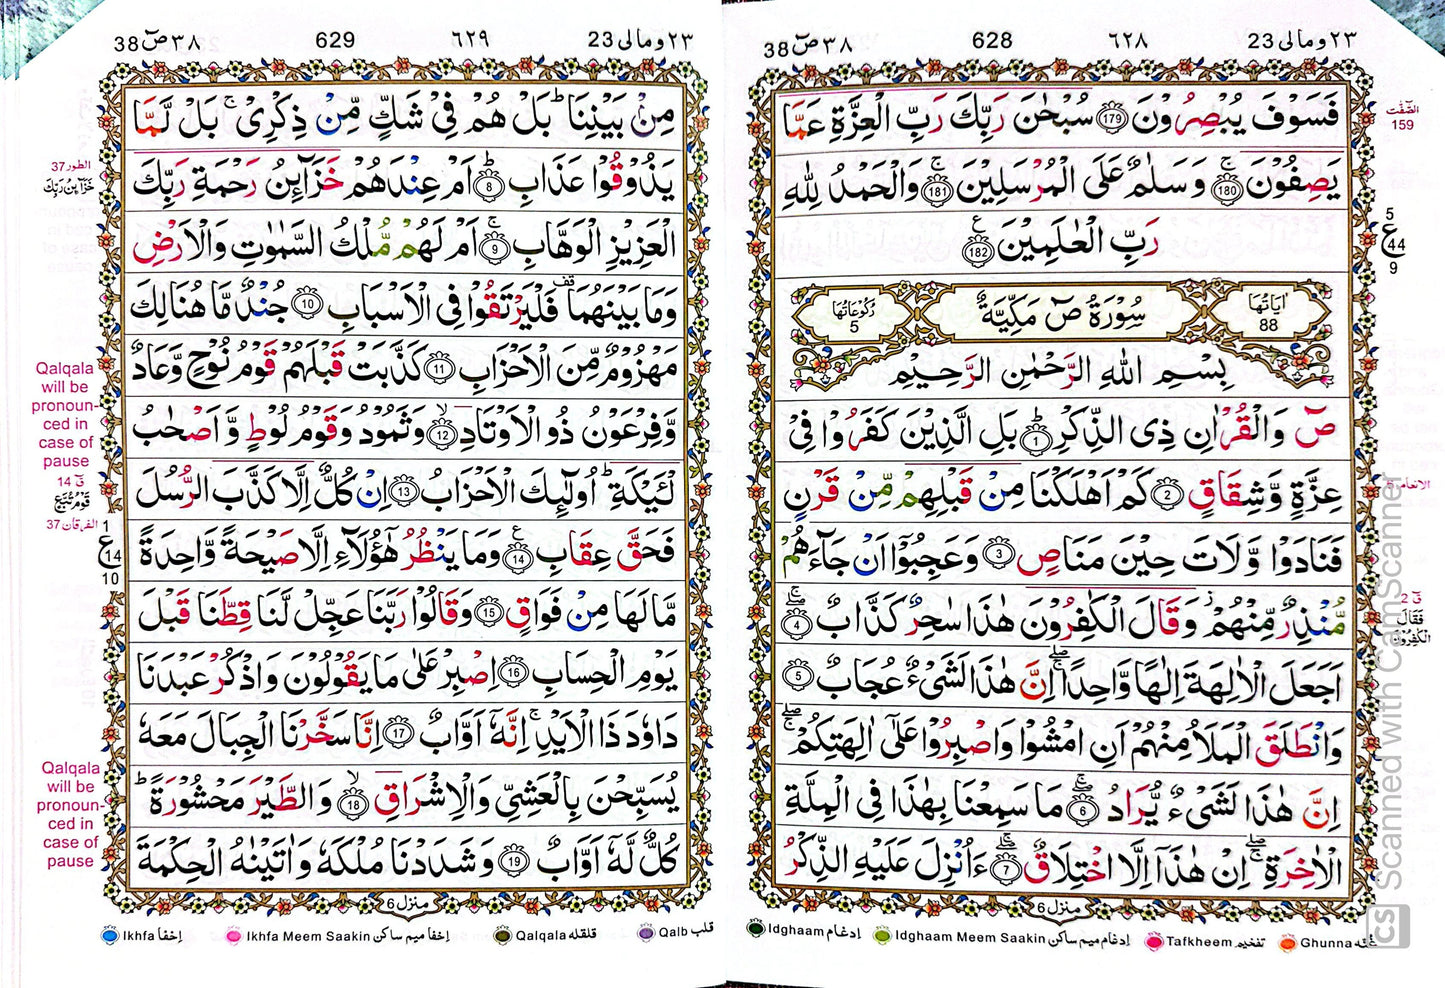 ٢٣ ومالى 23
٦٢٨
628
٣٨ صٓ 38
فَسَوْفَ يُبْصِرُوْنَ 179 سُبْحٰنَ رَبِّكَ رَبِّ الْعِزَّةِ عَمَّا
يَصِفُوْنَ ۚ 180 وَسَلٰمٌ عَلَى الْمُرْسَلِيْنَ ۚ 181 وَالْحَمْدُ لِلّٰهِ
رَبِّ الْعٰلَمِيْنَ ࣖ 182
اٰيَاتُهَا 88
سُوْرَةُ صٓ مَكِّيَّةٌ
رُكُوْعَاتُهَا 5
بِسْمِ اللهِ الرَّحْمٰنِ الرَّحِيْمِ
صٓ وَالْقُرْاٰنِ ذِى الذِّكْرِ ؕ 1 بَلِ الَّذِيْنَ كَفَرُوْا فِىْ
عِزَّةٍ وَّشِقَاقٍ 2 كَمْ اَهْلَكْنَا مِنْ قَبْلِهِمْ مِّنْ قَرْنٍ
فَنَادَوْا وَّلَاتَ حِيْنَ مَنَاصٍ 3 وَعَجِبُوْٓا اَنْ جَآءَهُمْ
مُّنْذِرٌ مِّنْهُمْ ؗ وَقَالَ الْكٰفِرُوْنَ هٰذَا سٰحِرٌ كَذَّابٌ ۖۚ 4
اَجَعَلَ الْاٰلِهَةَ اِلٰهًا وَّاحِدًا ۖۚ اِنَّ هٰذَا لَشَىْءٌ عُجَابٌ 5
وَانْطَلَقَ الْمَلَاُ مِنْهُمْ اَنِ امْشُوْا وَاصْبِرُوْا عَلٰٓى اٰلِهَتِكُمْ ۖۚ
اِنَّ هٰذَا لَشَىْءٌ يُّرَادُ ۖۚ 6 مَا سَمِعْنَا بِهٰذَا فِى الْمِلَّةِ
الْاٰخِرَةِ ۖۚ اِنْ هٰذَآ اِلَّا اخْتِلَاقٌ ۖۚ 7 ءَاُنْزِلَ عَلَيْهِ الذِّكْرُ
منزل 6
الصّٰٓفّٰت
159
5
ع 44
9
الانعام 6
قٓ 2
فَقَالَ
الْكٰفِرُوْنَ
Ghunna غنّه
Tafkheem تفخيم
Idghaam Meem Saakin ادغام ميم ساكن
Idghaam ادغام
Scanned with CamScanner
CS
٢٣ ومالى 23
٦٢٩
629
٣٨ صٓ 38
مِنْۢ بَيْنِنَا ؕ بَلْ هُمْ فِىْ شَكٍّ مِّنْ ذِكْرِىْ ۚ بَلْ لَّمَّا
يَذُوْقُوْا عَذَابِ ؕ 8 اَمْ عِنْدَهُمْ خَزَآئِنُ رَحْمَةِ رَبِّكَ
الْعَزِيْزِ الْوَهَّابِ ۚ 9 اَمْ لَهُمْ مُّلْكُ السَّمٰوٰتِ وَالْاَرْضِ
وَمَا بَيْنَهُمَا قف فَلْيَرْتَقُوْا فِى الْاَسْبَابِ 10 جُنْدٌ مَّا هُنَالِكَ
مَهْزُوْمٌ مِّنَ الْاَحْزَابِ 11 كَذَّبَتْ قَبْلَهُمْ قَوْمُ نُوْحٍ وَّعَادٌ
وَّفِرْعَوْنُ ذُو الْاَوْتَادِ ۙ 12 وَثَمُوْدُ وَقَوْمُ لُوْطٍ وَّاَصْحٰبُ
لْئَيْكَةِ ؕ اُولٰٓئِكَ الْاَحْزَابُ 13 اِنْ كُلٌّ اِلَّا كَذَّبَ الرُّسُلَ
فَحَقَّ عِقَابِ ࣖ 14 وَمَا يَنْظُرُ هٰٓؤُلَآءِ اِلَّا صَيْحَةً وَّاحِدَةً
مَّا لَهَا مِنْ فَوَاقٍ 15 وَقَالُوْا رَبَّنَا عَجِّلْ لَّنَا قِطَّنَا قَبْلَ
يَوْمِ الْحِسَابِ 16 اِصْبِرْ عَلٰى مَا يَقُوْلُوْنَ وَاذْكُرْ عَبْدَنَا
دَاوٗدَ ذَا الْاَيْدِ ۚ اِنَّهٗٓ اَوَّابٌ 17 اِنَّا سَخَّرْنَا الْجِبَالَ مَعَهٗ
يُسَبِّحْنَ بِالْعَشِىِّ وَالْاِشْرَاقِ ۙ 18 وَالطَّيْرَ مَحْشُوْرَةً ؕ
كُلٌّ لَّهٗٓ اَوَّابٌ 19 وَشَدَدْنَا مُلْكَهٗ وَاٰتَيْنٰهُ الْحِكْمَةَ
منزل 6
الطور 37
خَزَآئِنُ رَبِّكَ
Qalqala
will be
pronoun-
ced in
case of
pause
قٓ 14
قَوْمُ تُبَّعٍ
الفرقان 37
1
ع 14
10
Qalqala
will be
pronoun-
ced in
case of
pause
Qalb قلب
Qalqala قلقله
Ikhfa Meem Saakin اخفا ميم ساكن
Ikhfa اخفا